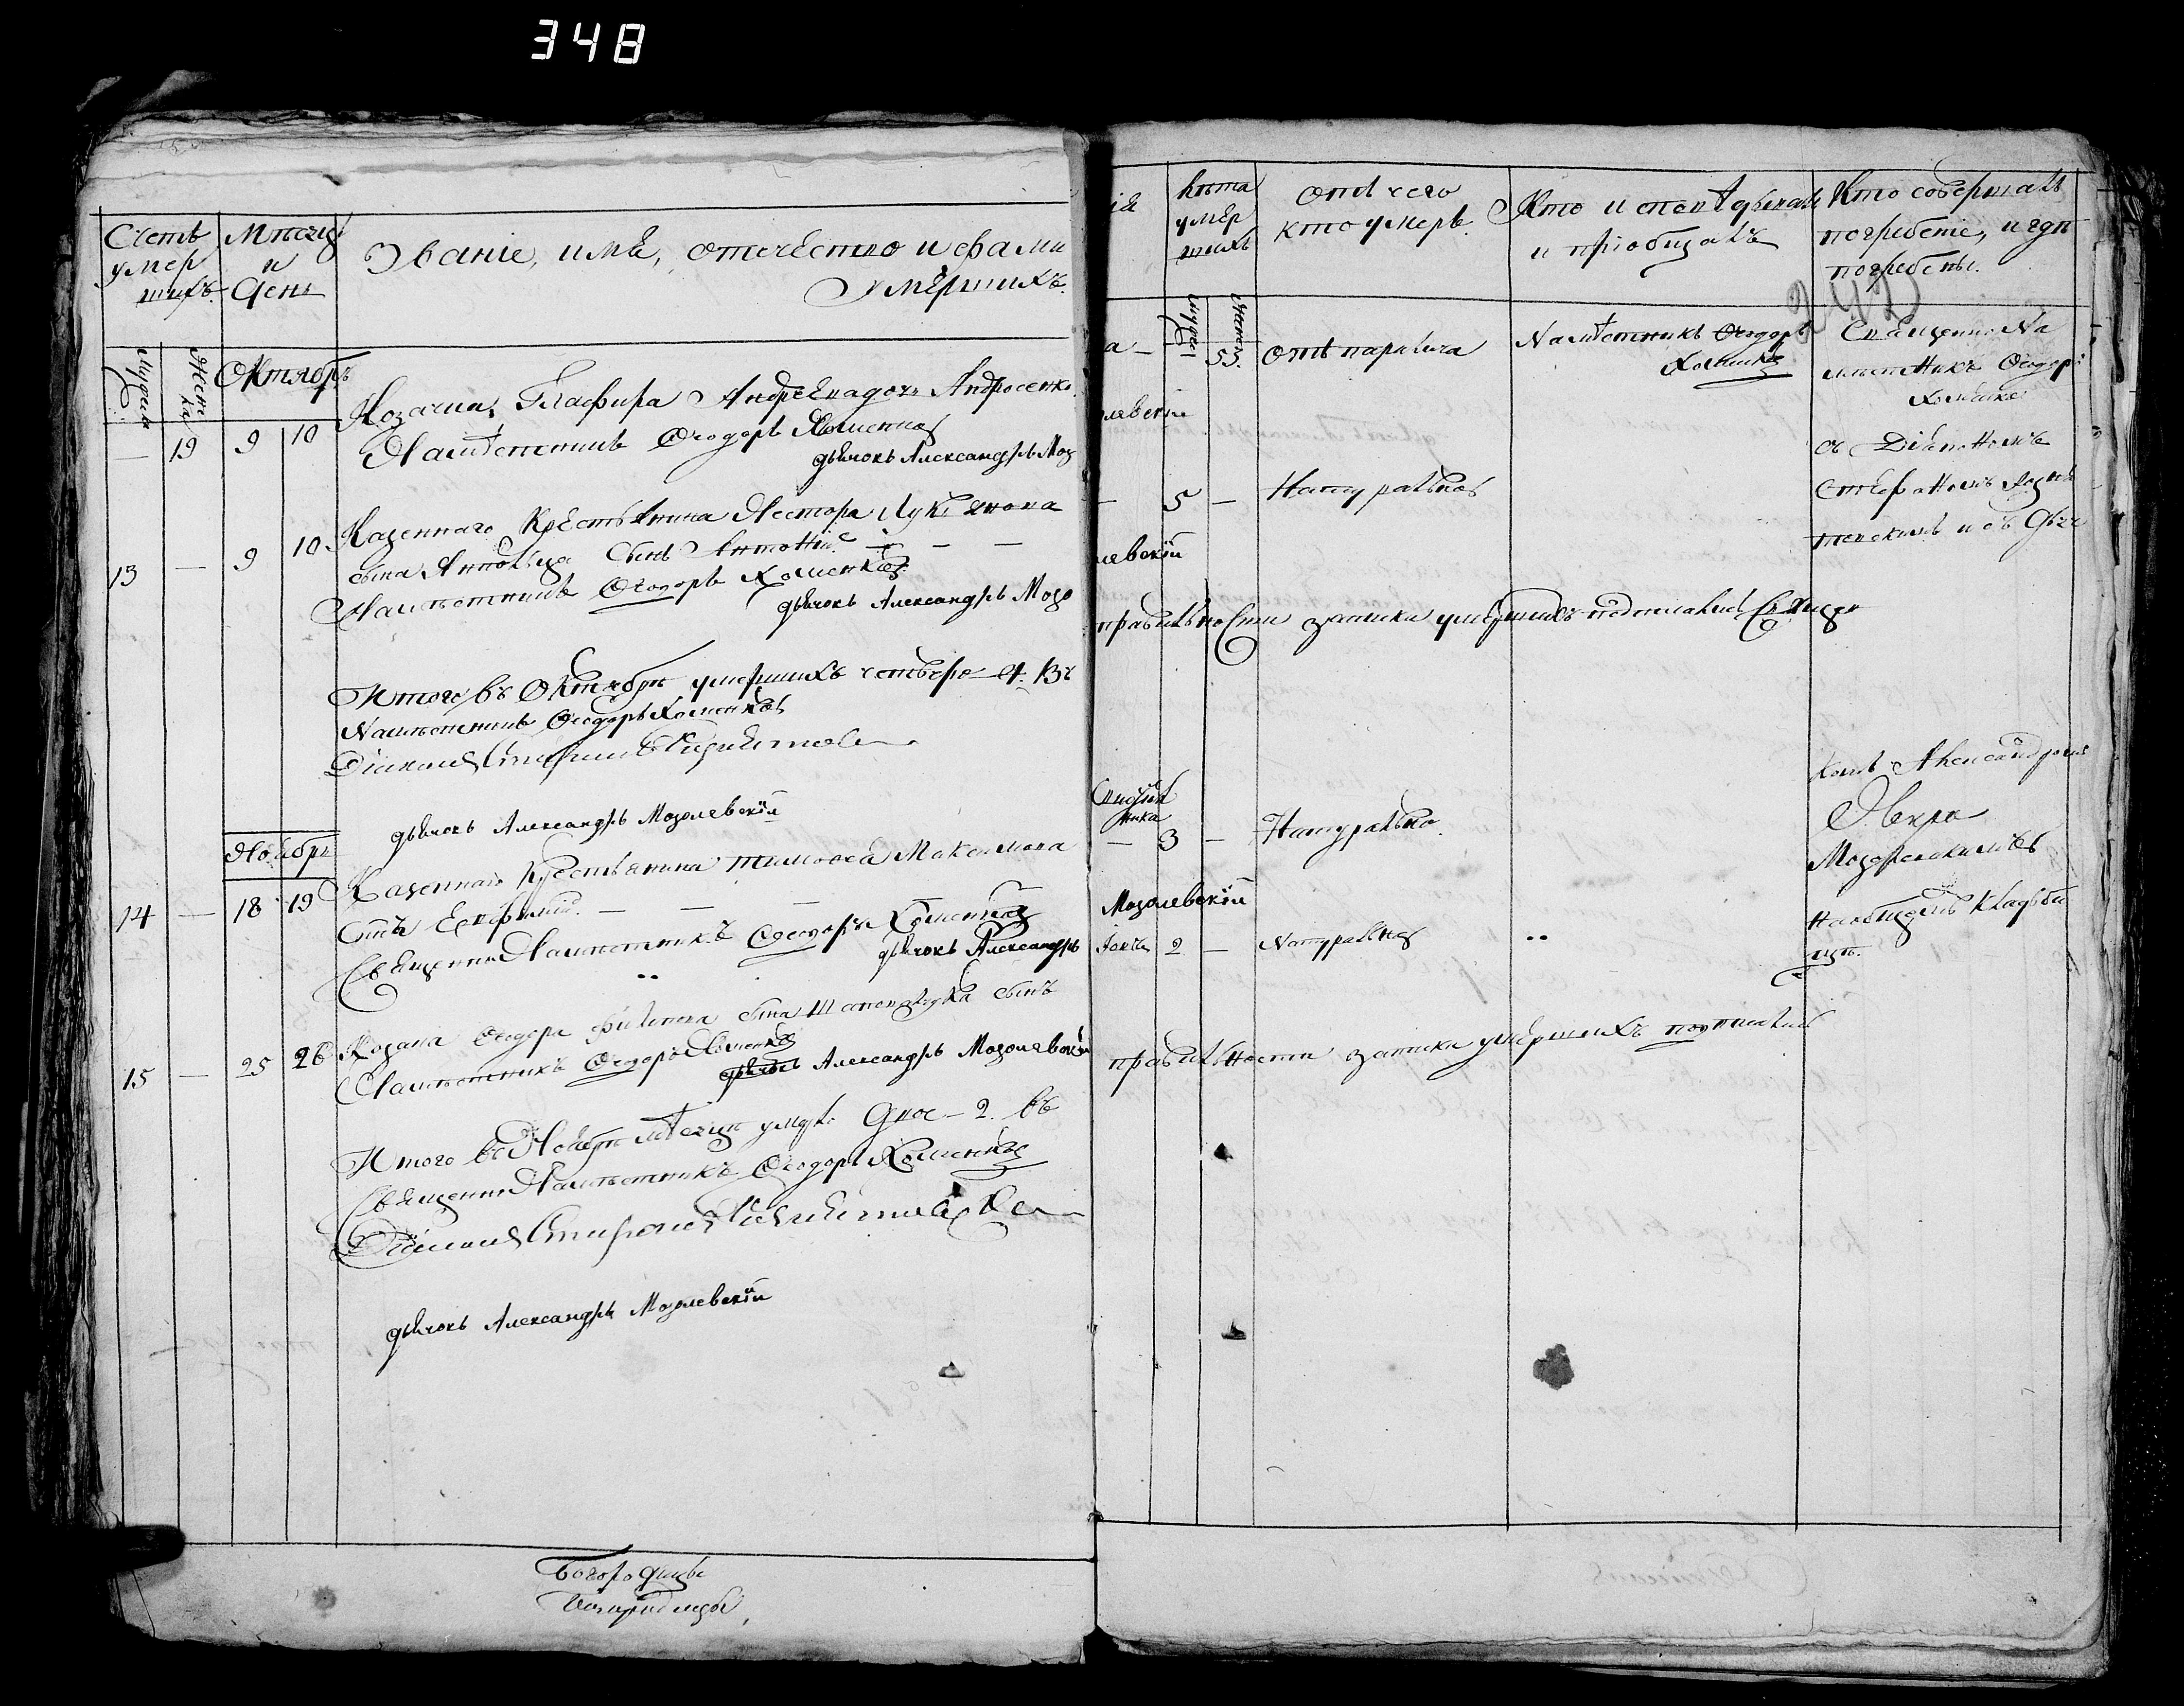 348
Счетъ
умер
шихъ.
Мѣсяцъ
и
День
Званіе, имя, отечество и фами
умершихъ.
Мужескъ
Женска
Октябрь
— 19 9 10 Козачка Гласфира Андреева дочь Андросенко
Намѣстникъ Ѳеодоръ Хоменко
дьячокъ Александръ Моз
13 — 9 10 Казеннаго Крестьянина Нестора Лукьянова
сына сынъ Антоній — — —
Намѣстникъ Ѳеодоръ Хоменко
дьячокъ Александръ Мозо
Итого въ Октябрѣ умершихъ четверо 4. Въ
Намѣстникъ Ѳеодоръ Хоменко
Діаконъ Стефанъ
дьячокъ Александръ Мозолевскій
Ноябрь
14 — 18 19 Казеннаго Крестьянина Тимоѳея Максимова
Сынъ Евфимій. — — —
Священникъ Намѣстникъ Ѳеодоръ Хоменко
дьячокъ Александръ
15 — 25 26 Козака Ѳедора Филипова сына сынъ
Намѣстникъ Ѳеодоръ Хоменко
дьячокъ Александръ Мозолевскій
Итого въ Ноябрѣ мѣсяцѣ двое — 2. въ
Священникъ Намѣстникъ Ѳеодоръ Хоменко
Діаконъ Стефанъ
дьячокъ Александръ Мозолевскій
Богородицы
ія
Лѣта
умер
шихъ
Отъ чего
кто умеръ.
Кто исповѣдывалъ
и пріобщалъ
Кто совершалъ
погребеніе, и гдѣ
погребены.
Мужес
Женс
242
а — — 53. Отъ паралича
Намѣстникъ Ѳеодоръ
Хоменко
Священникъ На
мѣстникъ Ѳеодоръ
Хоменко
левскій
съ Діакономъ
— 5 — Натуральной
Стефаномъ
и съ Дьяч
левскій
правильности записки умершихъ подписались
комъ Александромъ
— 3 — Натурально.
Мозолевскимъ
Мозолевскій
на общемъ кладби
2 — Натуральной
щѣ.
правильности записки умершихъ подписались